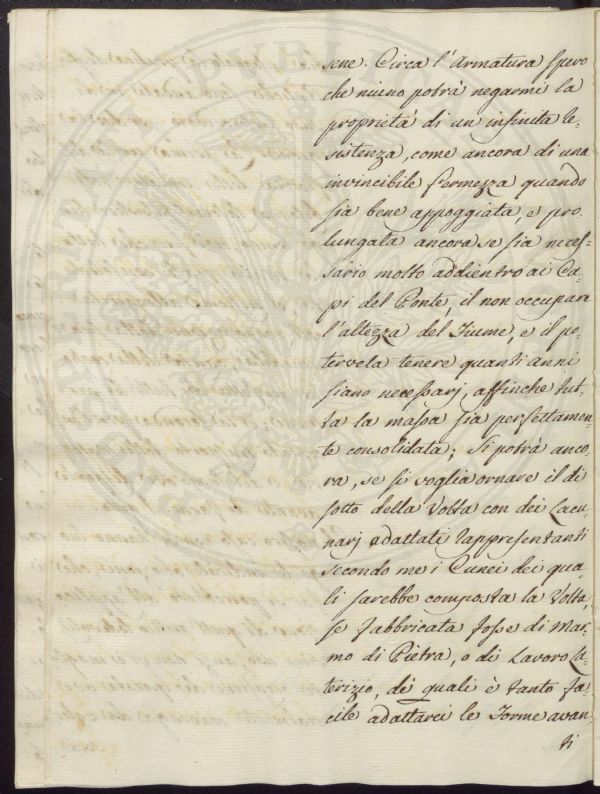 sene. Circa l'Armatura spero
che niuno potrà negarmi la
proprietà di un' infinita re-
sistenza, come ancora di una
invincibile fermezza quando
sia bene appoggiata, e pro
lungata ancora se sia neces-
sario molto addientro ai Ca-
pi del Ponte, il non occupare
l'altezza del Fiume, e il po-
tervela tenere quanti anni
siano necessarj, affinche tut-
ta la massa sia perfettamen-
te consolidata; Si potrà anco-
ra, se si voglia ornare il di
sotto della Volta con dei Lacu-
narj adattati rappresentanti
secondo me i Cunei dei qua-
li sarebbe composta la Volta,
se fabbricata fosse di Mar-
mo di Pietra, o di Lavoro La-
terizio, de' quali è tanto fa-
cile adattarci le Forme avan-
ti